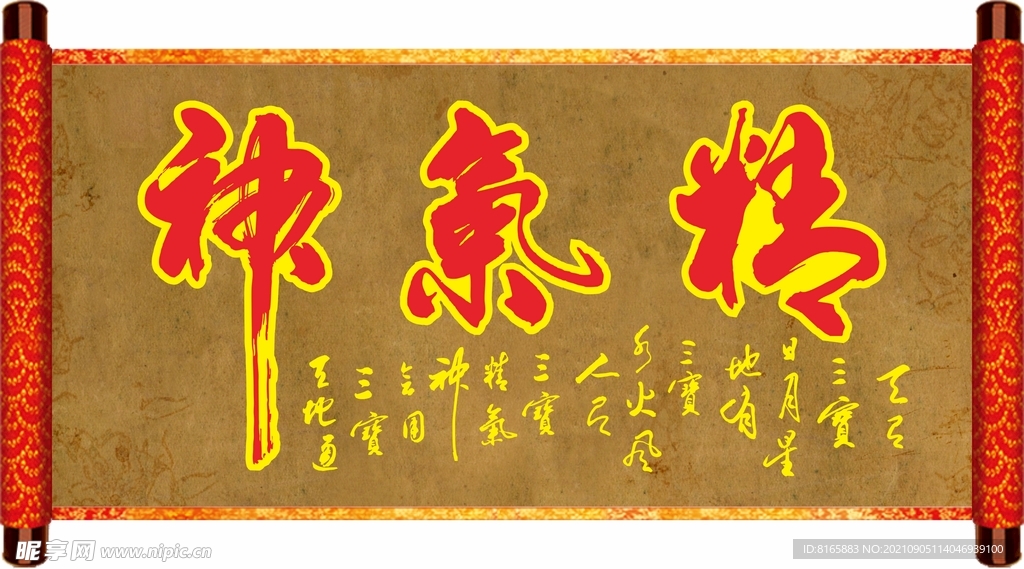 精氣神
天有
三寶
日月星
地有
三寶
水火風
人有
三寶
精氣
神
会用
三寶
天地通
昵享网 www.nipic.cn
ID:8165883 NO:20210905114046939100